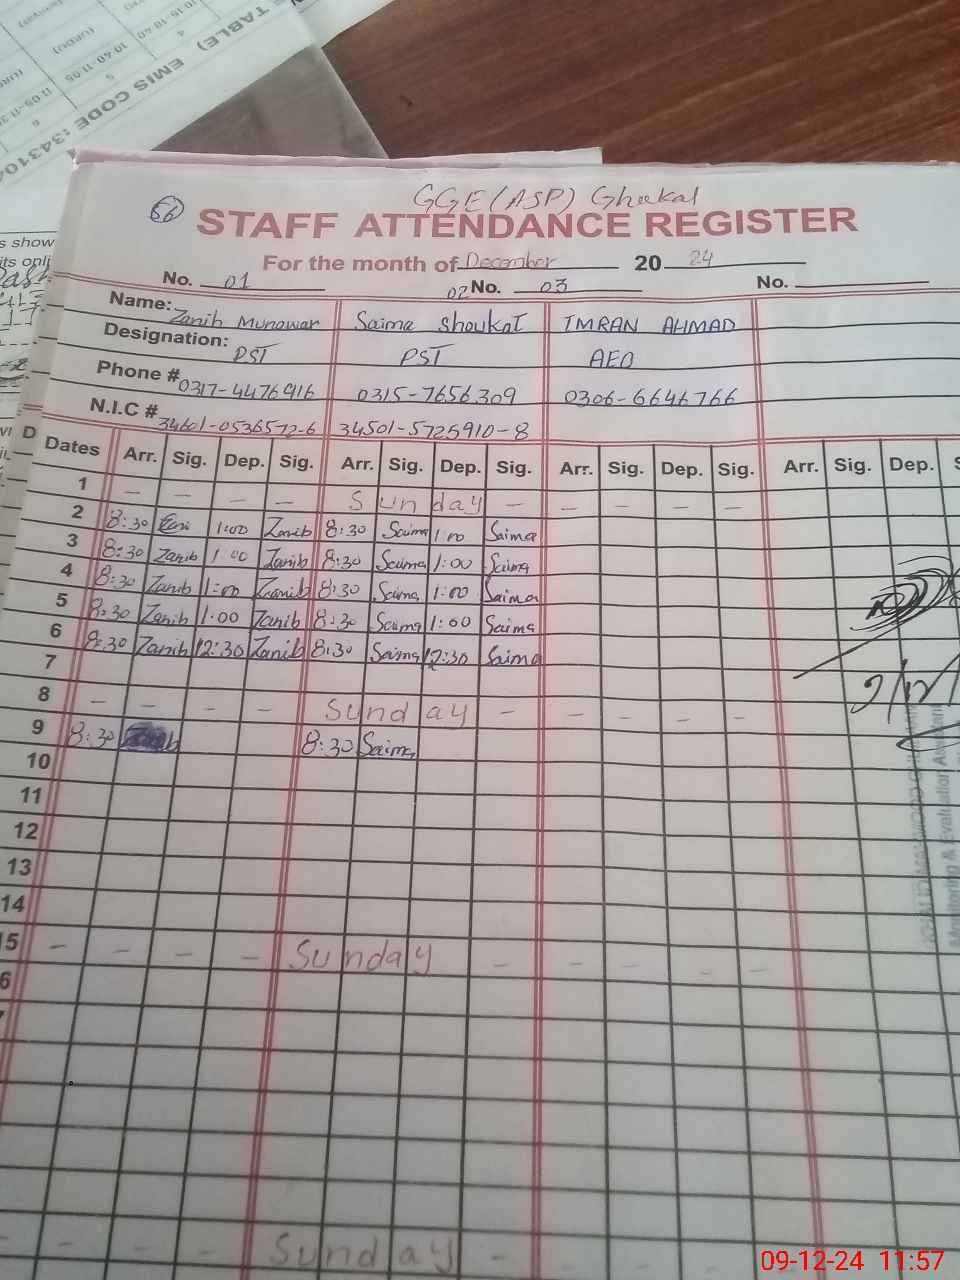 TABLE)
EMIS CODE :34310
10:15-10:40
10:40-11:05
(URDU)
4
5
6
s show
its onl
56
GGE (ASP) Ghukal
STAFF ATTENDANCE REGISTER
For the month of December 20 24
No. 01 02 No. 03 No.
Name: Zanib Munawar Saima Shoukat IMRAN AHMAD
Designation: PST PST AEO
Phone # 0317-4476916 0315-7656309 0306-6646766
N.I.C # 34601-0536572-6 34501-5725910-8
D
Dates Arr. Sig. Dep. Sig. Arr. Sig. Dep. Sig. Arr. Sig. Dep. Sig. Arr. Sig. Dep. S
1 - - - - Sunday - - - - -
2 8:30 1:00 Zanib 8:30 Saima 1:00 Saima
3 8:30 Zanib 1:00 Zanib 8:30 Saima 1:00 Saima
4 8:30 Zanib 1:00 Zanib 8:30 Saima 1:00 Saima
5 8:30 Zanib 1:00 Zanib 8:30 Saima 1:00 Saima
6 8:30 Zanib 12:30 Zanib 8:30 Saima 12:30 Saima
7
8 - - - - Sunday - - - - -
9 8:30 8:30 Saima
10
11
12
13
14
15 - - - - Sunday - - - - -
6
- - - - Sunday -
9/12/
Monitoring & Evaluation Assistant
09-12-24 11:57